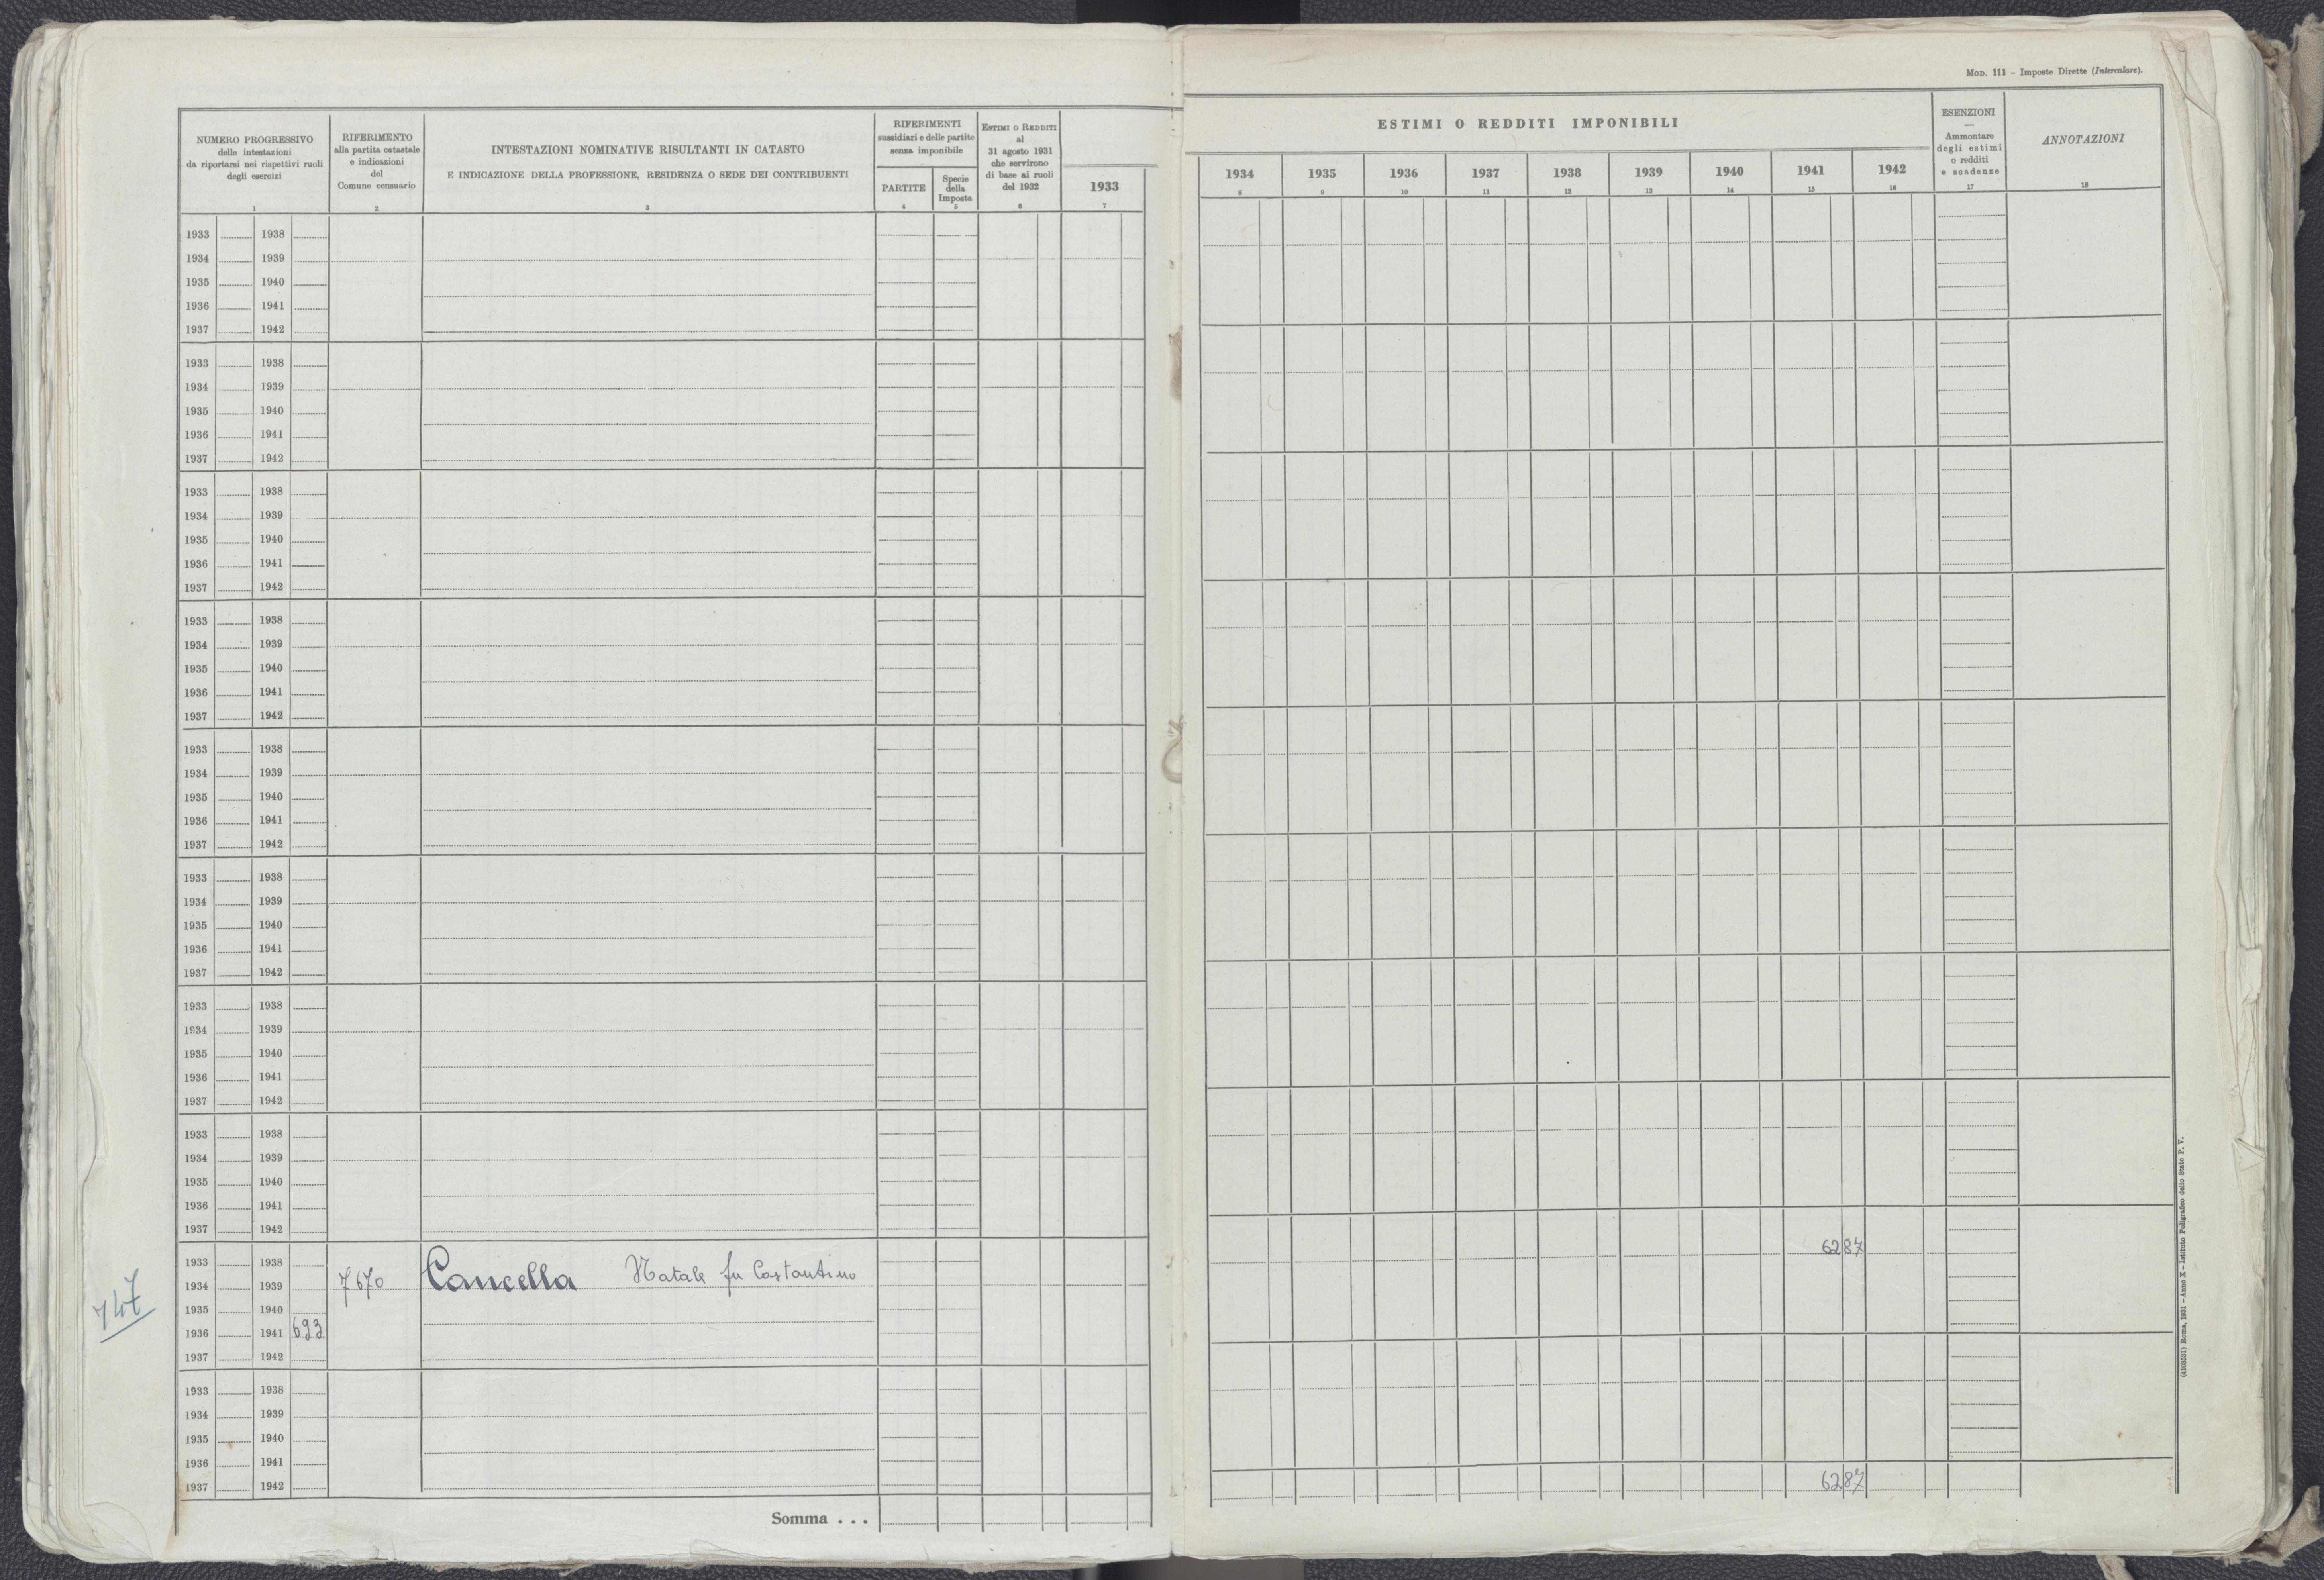 Mod. 111 – Imposte Dirette (Intercalare).
NUMERO PROGRESSIVO
delle intestazioni
da riportarsi nei rispettivi ruoli
degli esercizi
1
RIFERIMENTO
alla partita catastale
e indicazioni
del
Comune censuario
2
INTESTAZIONI NOMINATIVE RISULTANTI IN CATASTO
E INDICAZIONE DELLA PROFESSIONE, RESIDENZA O SEDE DEI CONTRIBUENTI
3
RIFERIMENTI
sussidiari e delle partite
senza imponibile
PARTITE
4
Specie
della
Imposta
5
Estimi o Redditi
al
31 agosto 1931
che servirono
di base ai ruoli
del 1932
6
1933
7
ESTIMI O REDDITI IMPONIBILI
1934 1935 1936 1937 1938 1939 1940 1941 1942
8 9 10 11 12 13 14 15 16
ESENZIONI
—
Ammontare
degli estimi
o redditi
e scadenze
17
ANNOTAZIONI
18
1933 1938
1934 1939
1935 1940
1936 1941
1937 1942
1933 1938
1934 1939
1935 1940
1936 1941
1937 1942
1933 1938
1934 1939
1935 1940
1936 1941
1937 1942
1933 1938
1934 1939
1935 1940
1936 1941
1937 1942
1933 1938
1934 1939
1935 1940
1936 1941
1937 1942
1933 1938
1934 1939
1935 1940
1936 1941
1937 1942
1933 1938
1934 1939
1935 1940
1936 1941
1937 1942
1933 1938
1934 1939
1935 1940
1936 1941
1937 1942
1933 1938 6287
1934 1939 7670 Cancella Natale fu Costantino
1935 1940
1936 1941 693
1937 1942
1933 1938
1934 1939
1935 1940
1936 1941
1937 1942 6287
Somma . . .
(4108531) Roma, 1931 – Anno X – Istituto Poligrafico dello Stato P. V.